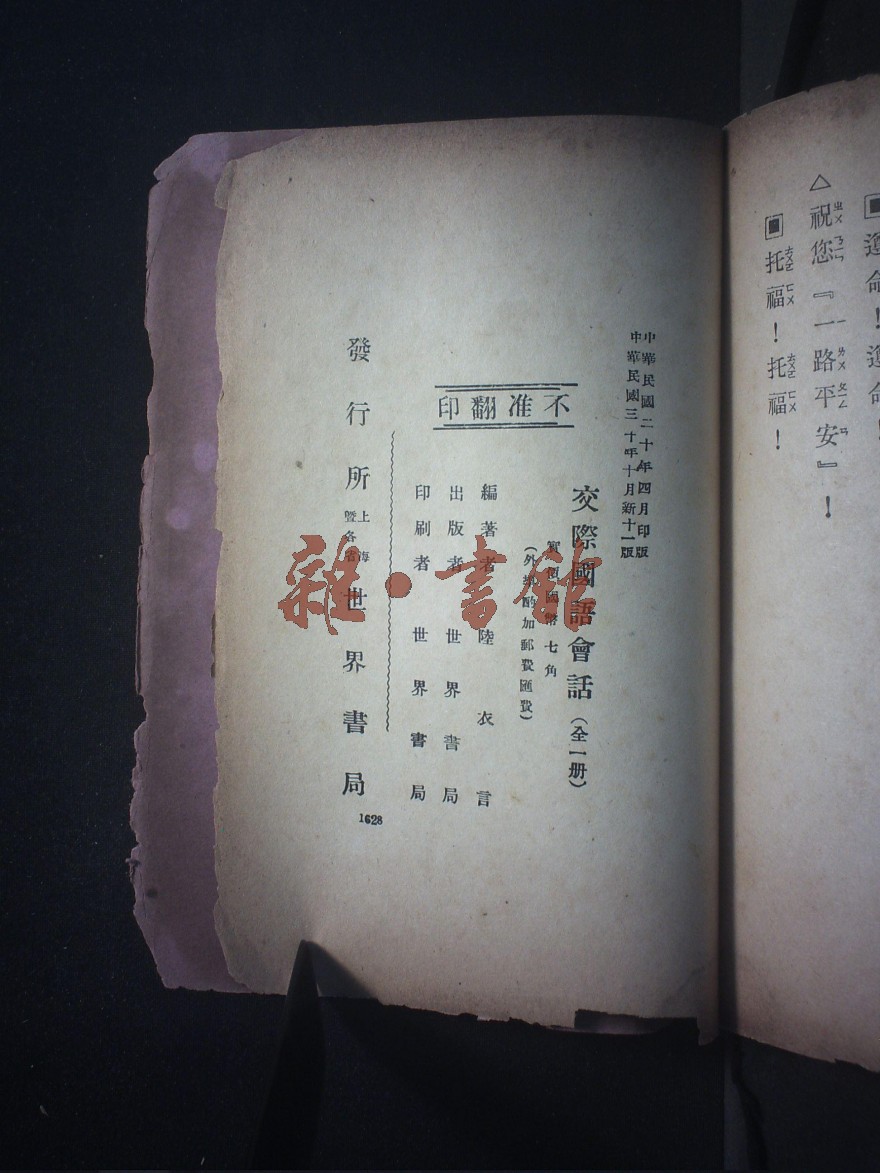 遵命！遵命！
△祝您『一路平安』！
托福！托福！
中華民國二十年四月印版
中華民國三十年十月新十一版
交際國語會話（全一册）
實價國幣七角
（外埠酌加郵費匯費）
不准翻印
編著者 陸衣言
出版者 世界書局
印刷者 世界書局
發行所 上海暨各省 世界書局
1628
雜·書館